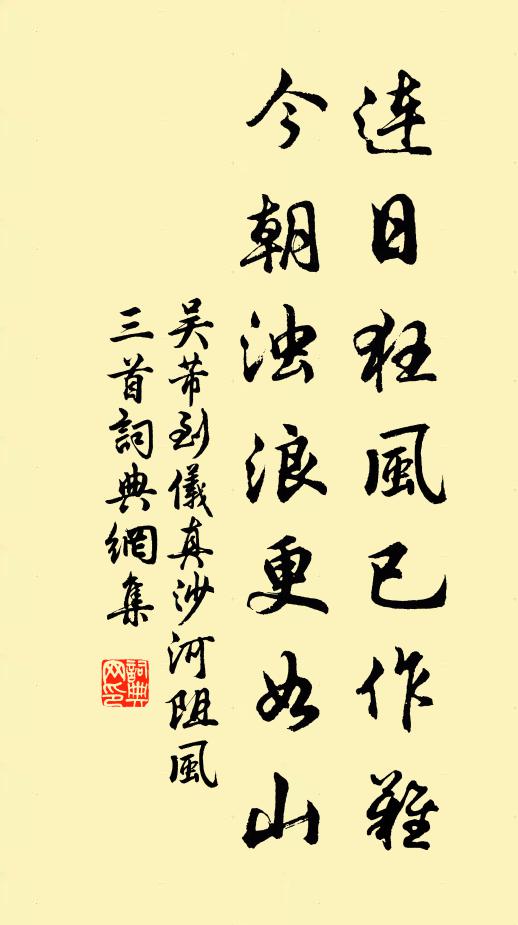 連日狂風已作難
今朝浊浪更如山
吴芾到儀真沙河阻風
三首詞典網集
詞典
网印